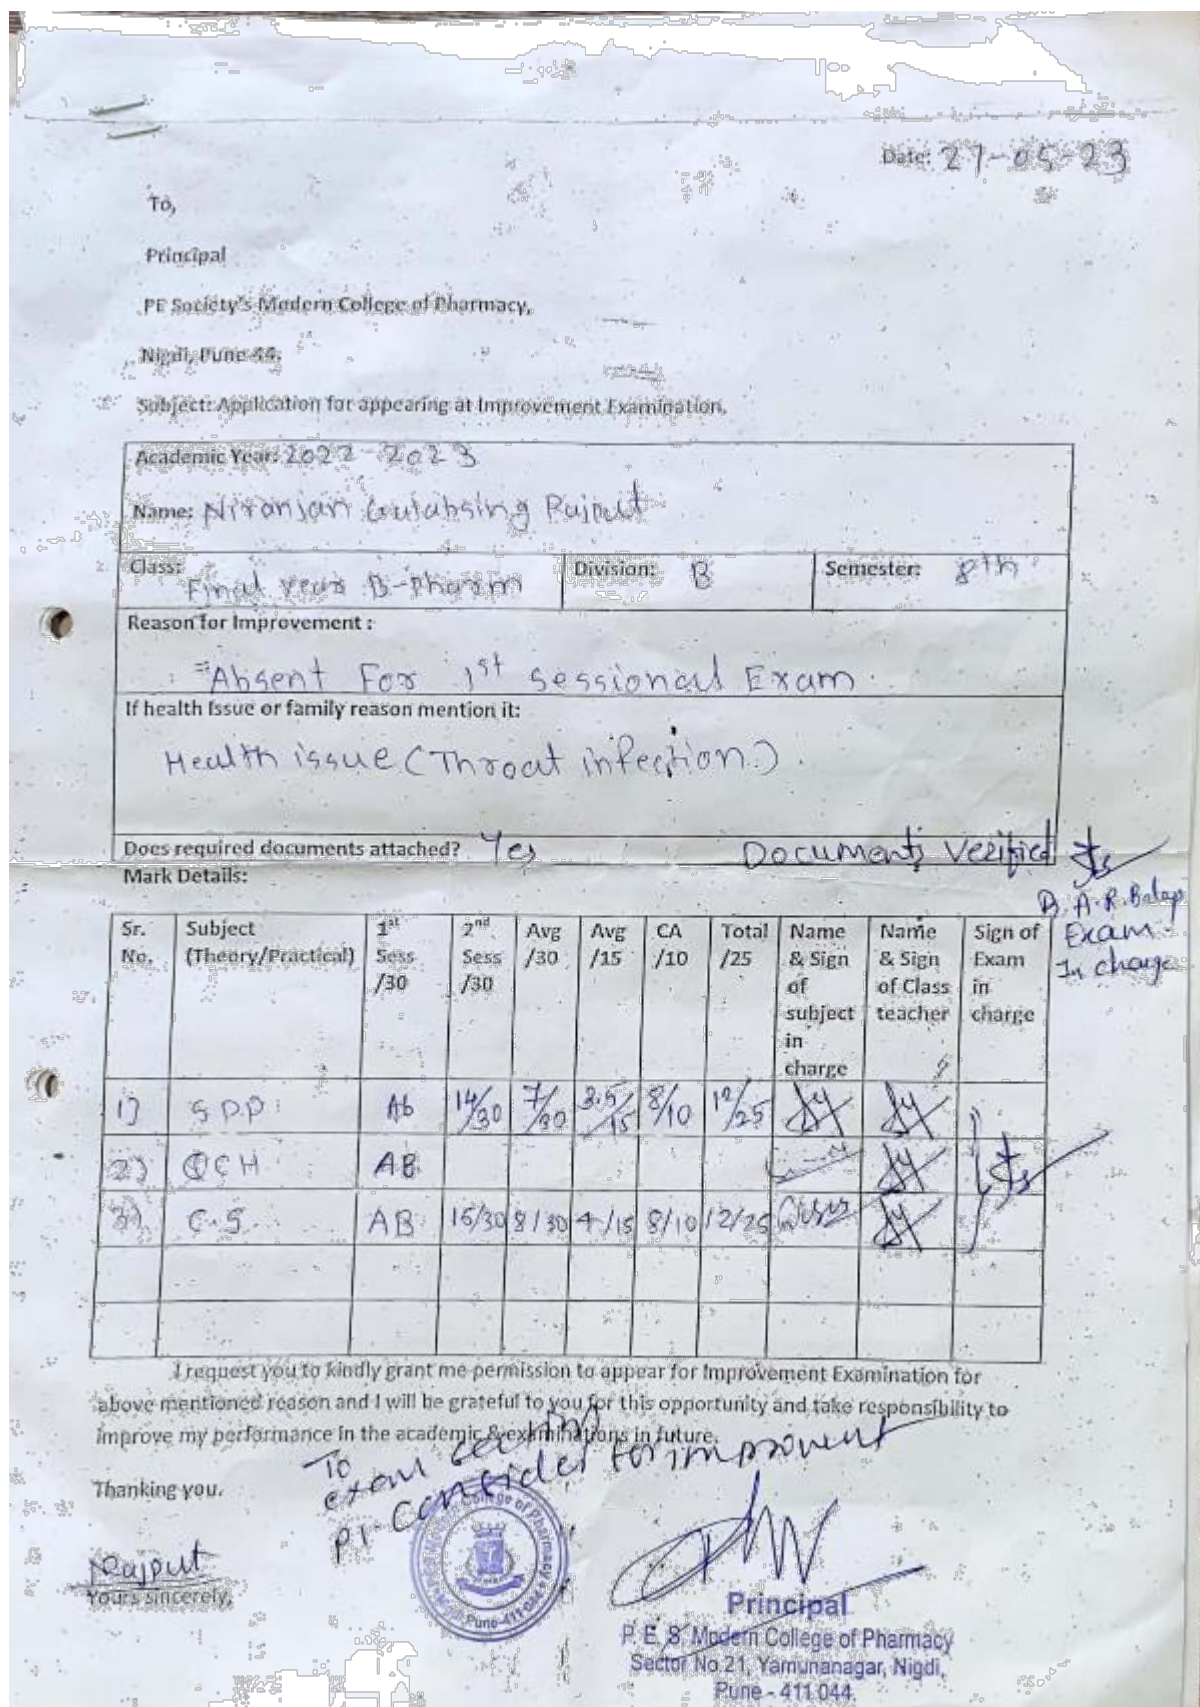 Date: 27-05-23
To,
Principal
PE Society's Modern College of Pharmacy,
Nigdi, Pune 44.
Subject: Application for appearing at Improvement Examination.
Academic Year: 2022-2023
Name: Niranjan Gulabsing Rajput
Class: Final year B-Pharm Division: B Semester: 8th
Reason for Improvement :
Absent For 1st sessional Exam.
If health issue or family reason mention it:
Health issue (Throat infection.).
Does required documents attached? Yes Documents Verified
Mark Details:
A.R.
Exam
In charge
Sr. No. Subject (Theory/Practical) 1st Sess /30 2nd Sess /30 Avg /30 Avg /15 CA /10 Total /25 Name & Sign of subject in charge Name & Sign of Class teacher Sign of Exam in charge
1) Ab 14/30 7/30 3.5/15 8/10 12/25
2) AB
3) C.S. AB 8/30 4/15 8/10 12/25
I request you to kindly grant me permission to appear for Improvement Examination for
above mentioned reason and I will be grateful to you for this opportunity and take responsibility to
improve my performance in the academic & examinations in future.
To
exam
Consider for
Thanking you.
Rajput
Yours sincerely,
College of Pharmacy
Pune-411 044
Principal
P. E. S. Modern College of Pharmacy
Sector No.21, Yamunanagar, Nigdi,
Pune - 411 044.